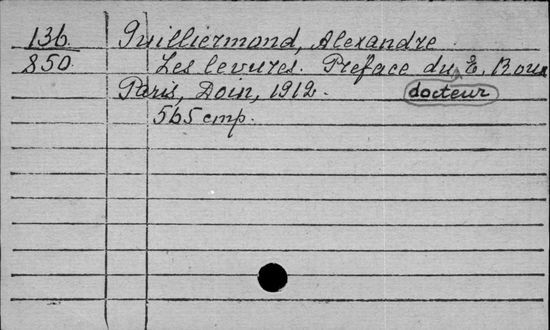 136. Guilliermond, Alexandre
850. Les levures. Preface du docteur E. Roux
Paris, Doin, 1912.
565 стр.